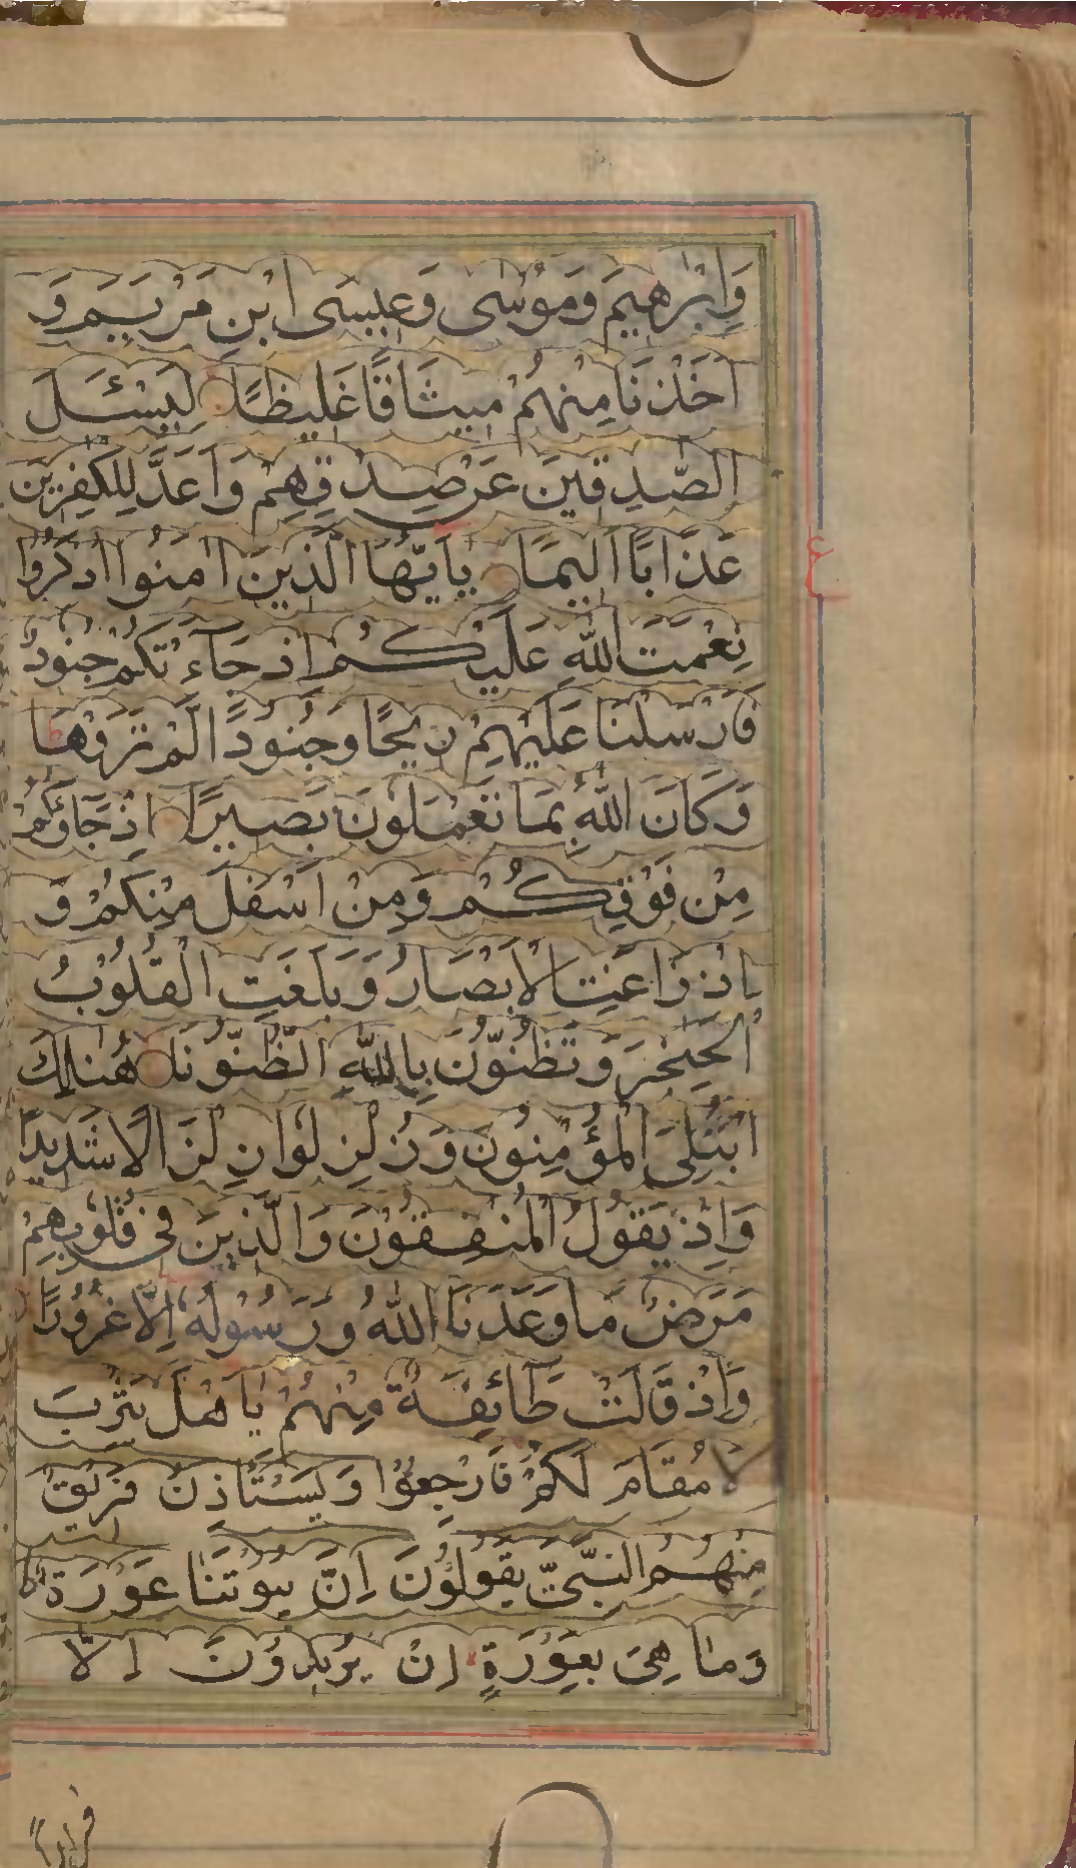 وَاِبْرٰهِيمَ وَمُوْسٰى وَعِيسَى ابْنِ مَرْيَمَ وَ
اَخَذْنَا مِنْهُمْ مِيثَاقًا غَلِيظًا لِيَسْـَٔلَ
الصّٰدِقِينَ عَنْ صِدْقِهِمْ وَاَعَدَّ لِلْكٰفِرِيْنَ
عَذَابًا اَلِيمًا يٰاَيُّهَا الَّذِيْنَ اٰمَنُوا اذْكُرُوْا
نِعْمَتَ اللّٰهِ عَلَيْكُمْ اِذْ جَآءَتْكُمْ جُنُوْدٌ
فَاَرْسَلْنَا عَلَيْهِمْ رِيْحًا وَجُنُوْدًا لَّمْ تَرَوْهَا
وَكَانَ اللّٰهُ بِمَا تَعْمَلُوْنَ بَصِيْرًا اِذْ جَآؤُكُمْ
مِنْ فَوْقِكُمْ وَمِنْ اَسْفَلَ مِنْكُمْ وَ
اِذْ زَاغَتِ الْاَبْصَارُ وَبَلَغَتِ الْقُلُوْبُ
الْحَنٰجِرَ وَتَظُنُّوْنَ بِاللّٰهِ الظُّنُوْنَا هُنَالِكَ
ابْتُلِيَ الْمُؤْمِنُوْنَ وَزُلْزِلُوْا زِلْزَالًا شَدِيْدًا
وَاِذْ يَقُوْلُ الْمُنٰفِقُوْنَ وَالَّذِيْنَ فِي قُلُوْبِهِمْ
مَرَضٌ مَا وَعَدَنَا اللّٰهُ وَرَسُوْلُهُ اِلَّا غُرُوْرًا
وَاِذْ قَالَتْ طَآئِفَةٌ مِنْهُمْ يٰاَهْلَ يَثْرِبَ
لَا مُقَامَ لَكُمْ فَارْجِعُوْا وَيَسْتَاْذِنُ فَرِيْقٌ
مِنْهُمُ النَّبِيَّ يَقُوْلُوْنَ اِنَّ بُيُوْتَنَا عَوْرَةٌ
وَمَا هِيَ بِعَوْرَةٍ اِنْ يُرِيْدُوْنَ اِلَّا
ع
فرارا